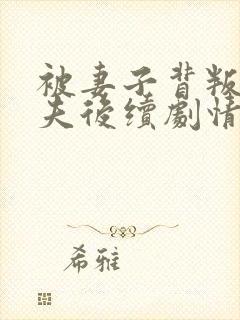 被妻子背叛
夫後續劇情
希雅